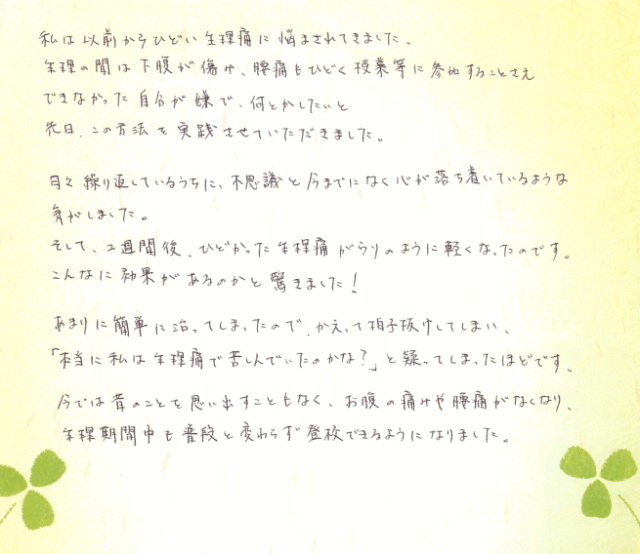 私は以前からひどい生理痛に悩まされてきました、
生理の間は下腹が傷み、腰痛もひどく授業等に参加することさえ
できなかった自分が嫌で、何とかしたいと
先日、この方法を実践させていただきました。
日々繰り返しているうちに、不思議と今までになく心が落ち着いているような
気がしました。
そして、2週間後、ひどかった生理痛がうりのように軽くなったのです。
こんなに効果があるのかと驚きました!
あまりに簡単に治ってしまったので、かえって拍子抜けしてしまい、
「本当に私は生理痛で苦しんでいたのかな?」と疑ってしまったほどです。
今では昔のことを思い出すこともなく、お腹の痛みや腰痛がなくなり、
生理期間中も普段と変わらず登校できるようになりました。